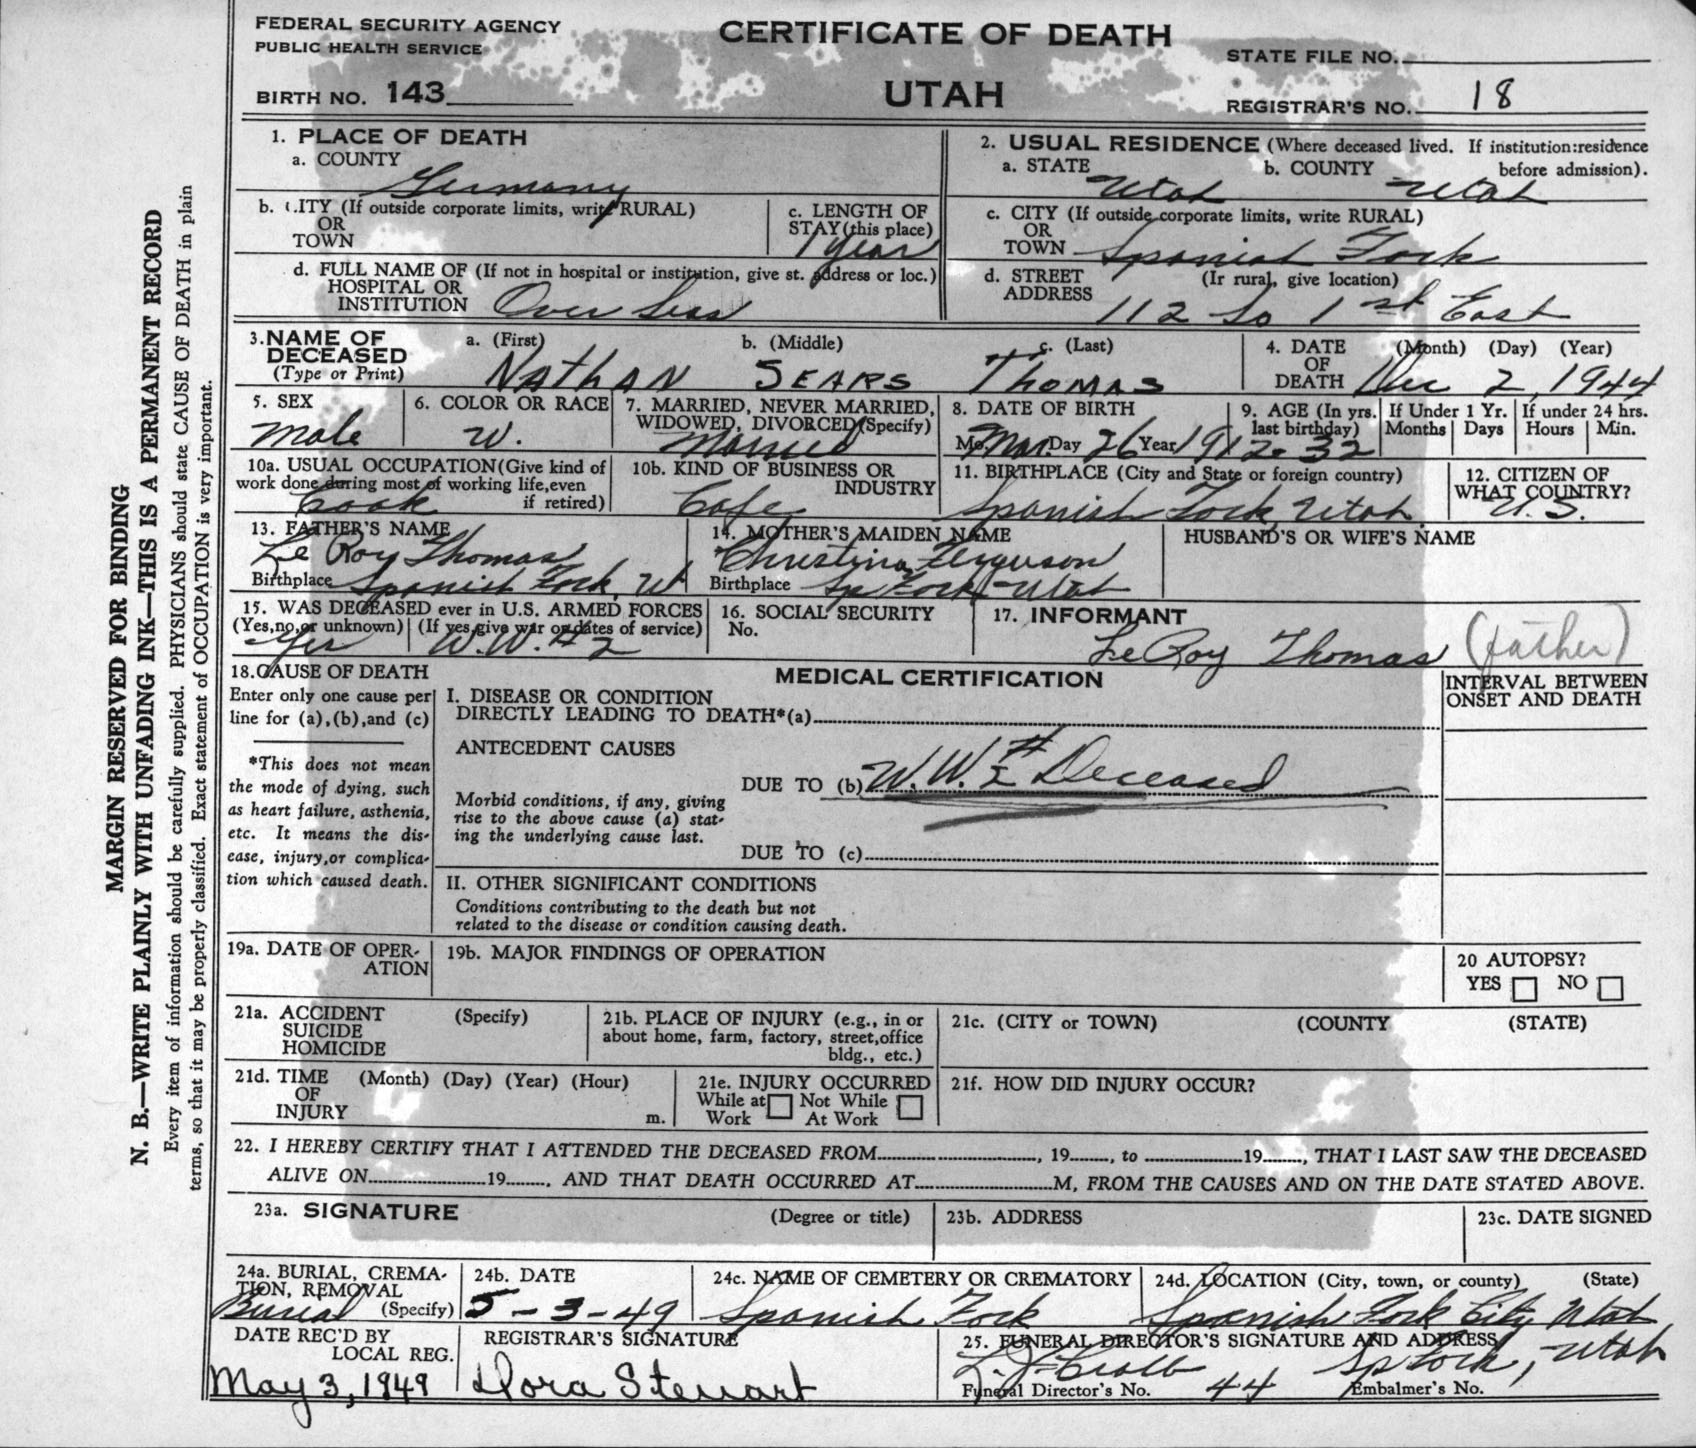 FEDERAL SECURITY AGENCY
PUBLIC HEALTH SERVICE
CERTIFICATE OF DEATH
STATE FILE NO.
BIRTH NO. 143
UTAH
REGISTRAR'S NO. 18
1. PLACE OF DEATH
a. COUNTY
Germany
2. USUAL RESIDENCE (Where deceased lived. If institution:residence
before admission).
a. STATE Utah b. COUNTY Utah
b. CITY (If outside corporate limits, write RURAL)
OR
TOWN
c. LENGTH OF
STAY (this place)
1 year
c. CITY (If outside corporate limits, write RURAL)
OR
TOWN Spanish Fork
d. FULL NAME OF (If not in hospital or institution, give st. address or loc.)
HOSPITAL OR
INSTITUTION Over Seas
d. STREET (Ir rural, give location)
ADDRESS 112 So 1st East
3. NAME OF
DECEASED
(Type or Print)
a. (First) b. (Middle) c. (Last)
NATHAN SEARS THOMAS
4. DATE (Month) (Day) (Year)
OF
DEATH Dec 2, 1944
5. SEX
Male
6. COLOR OR RACE
W.
7. MARRIED, NEVER MARRIED,
WIDOWED, DIVORCED (Specify)
Married
8. DATE OF BIRTH
Mo. Mar. Day 26 Year 1912
9. AGE (In yrs.
last birthday)
32
If Under 1 Yr.
Months Days
If under 24 hrs.
Hours Min.
10a. USUAL OCCUPATION (Give kind of
work done during most of working life, even
if retired)
Cook
10b. KIND OF BUSINESS OR
INDUSTRY
Cafe
11. BIRTHPLACE (City and State or foreign country)
Spanish Fork, Utah.
12. CITIZEN OF
WHAT COUNTRY?
U.S.
13. FATHER'S NAME
Le Roy Thomas
Birthplace Spanish Fork, Ut
14. MOTHER'S MAIDEN NAME
Christina Ferguson
Birthplace Sp Fork, Utah
HUSBAND'S OR WIFE'S NAME
15. WAS DECEASED ever in U.S. ARMED FORCES
(Yes, no, or unknown) (If yes, give war or dates of service)
Yes W.W. #2
16. SOCIAL SECURITY
No.
17. INFORMANT
LeRoy Thomas (father)
18. CAUSE OF DEATH
Enter only one cause per
line for (a), (b), and (c)
*This does not mean
the mode of dying, such
as heart failure, asthenia,
etc. It means the dis-
ease, injury, or complica-
tion which caused death.
MEDICAL CERTIFICATION
INTERVAL BETWEEN
ONSET AND DEATH
I. DISEASE OR CONDITION
DIRECTLY LEADING TO DEATH*(a)
ANTECEDENT CAUSES
DUE TO (b) W.W. # Deceased
Morbid conditions, if any, giving
rise to the above cause (a) stat-
ing the underlying cause last.
DUE TO (c)
II. OTHER SIGNIFICANT CONDITIONS
Conditions contributing to the death but not
related to the disease or condition causing death.
19a. DATE OF OPER-
ATION
19b. MAJOR FINDINGS OF OPERATION
20 AUTOPSY?
YES NO
21a. ACCIDENT (Specify)
SUICIDE
HOMICIDE
21b. PLACE OF INJURY (e.g., in or
about home, farm, factory, street, office
bldg., etc.)
21c. (CITY or TOWN) (COUNTY (STATE)
21d. TIME (Month) (Day) (Year) (Hour)
OF
INJURY m.
21e. INJURY OCCURRED
While at Not While
Work At Work
21f. HOW DID INJURY OCCUR?
22. I HEREBY CERTIFY THAT I ATTENDED THE DECEASED FROM , 19 , to 19 , THAT I LAST SAW THE DECEASED
ALIVE ON 19 , AND THAT DEATH OCCURRED AT M, FROM THE CAUSES AND ON THE DATE STATED ABOVE.
23a. SIGNATURE (Degree or title)
23b. ADDRESS
23c. DATE SIGNED
24a. BURIAL, CREMA-
TION, REMOVAL
(Specify)
Burial
24b. DATE
5-3-49
24c. NAME OF CEMETERY OR CREMATORY
Spanish Fork
24d. LOCATION (City, town, or county) (State)
Spanish Fork City, Utah
DATE REC'D BY
LOCAL REG.
May 3, 1949
REGISTRAR'S SIGNATURE
Dora Stewart
25. FUNERAL DIRECTOR'S SIGNATURE AND ADDRESS
Sp Fork, Utah
Funeral Director's No. 44 Embalmer's No.
MARGIN RESERVED FOR BINDING
N. B.—WRITE PLAINLY WITH UNFADING INK—THIS IS A PERMANENT RECORD
Every item of information should be carefully supplied. PHYSICIANS should state CAUSE OF DEATH in plain
terms, so that it may be properly classified. Exact statement of OCCUPATION is very important.